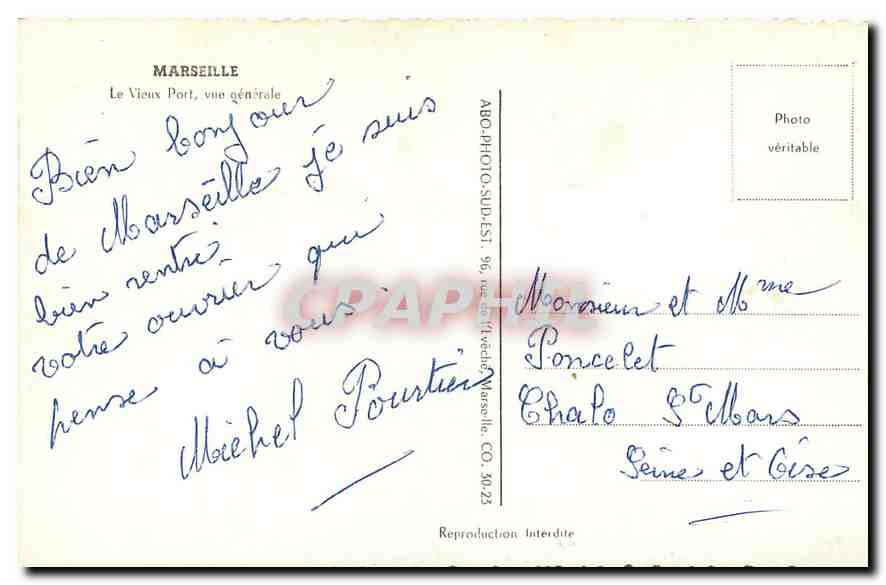 MARSEILLE
Le Vieux Port, vue générale
Bien bonjour
de Marseille je suis
bien rentré.
votre ouvrier qui
pense à vous.
Michel Pourtier
ABO-PHOTO-SUD-EST. 96, rue de l'Evêché, Marseille. CO. 30-23
Photo
véritable
Monsieur et Mme
Poncelet
Chalo St Mars
Seine et Oise
Reproduction Interdite
CPAPHIL